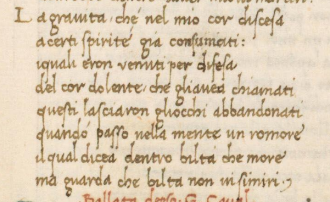 La gravita che nel mio cor discesa
acerti spirite già consumati:
iquali eron venuti per difesa
del cor dolente, che gliavea chiamati
questi lasciaron gliocchi abbandonati
quando passo nella mente un romore
il qual dicea dentro bilta che more
ma guarda che bilta non visimiri,
Ballata